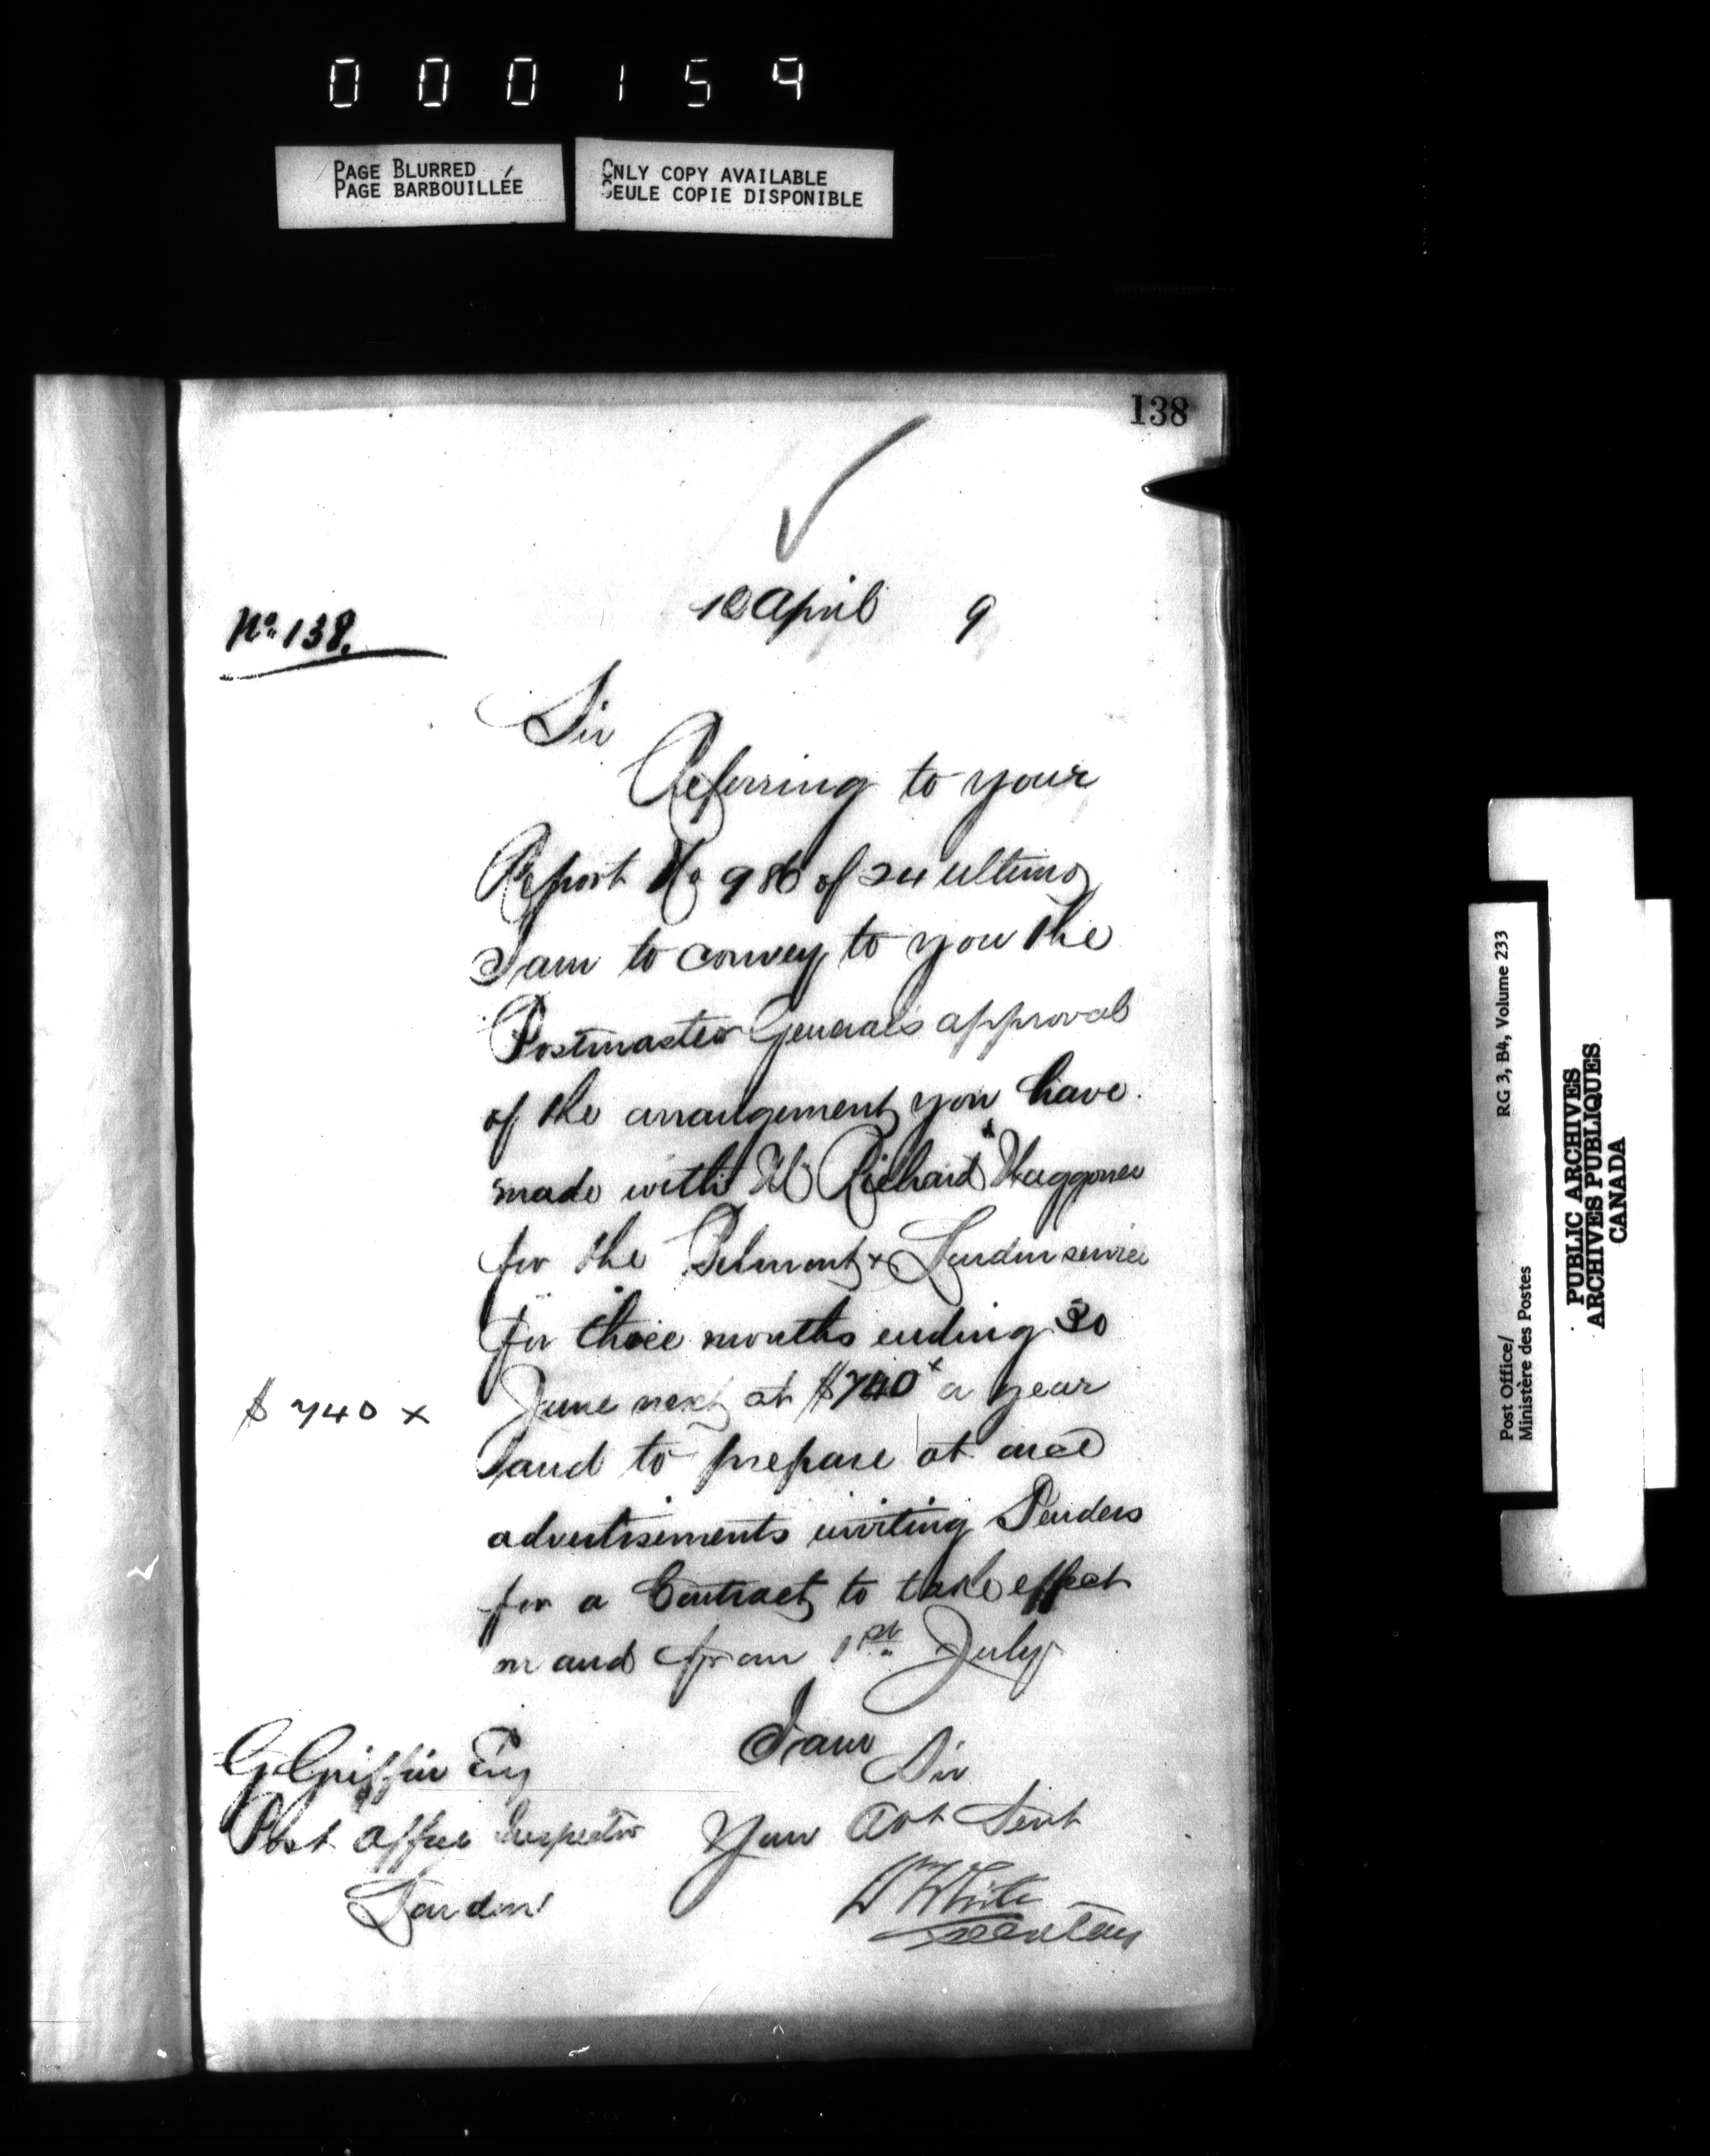 000159
PAGE BLURRED
PAGE BARBOUILLÉE
ONLY COPY AVAILABLE
SEULE COPIE DISPONIBLE
138
10 April 9
No. 138.
Sir
Referring to your
Report No 986 of 24 ultimo
I am to convey to you the
Postmaster Generals approval
of the arrangement you have
made with Richard Waggoner
for the Belmont & London service
for three months ending 30
June next at $740 x a year
$ 740 x
and to prepare at once
advertisements inviting Tenders
for a Contract to take effect
on and from 1st July
I am
Sir
G Griffin Esq
Post Office Inspector
London
Your Obt Servt
W White
Secretary
Post Office/
Ministère des Postes
RG 3, B4, Volume 233
PUBLIC ARCHIVES
ARCHIVES PUBLIQUES
CANADA